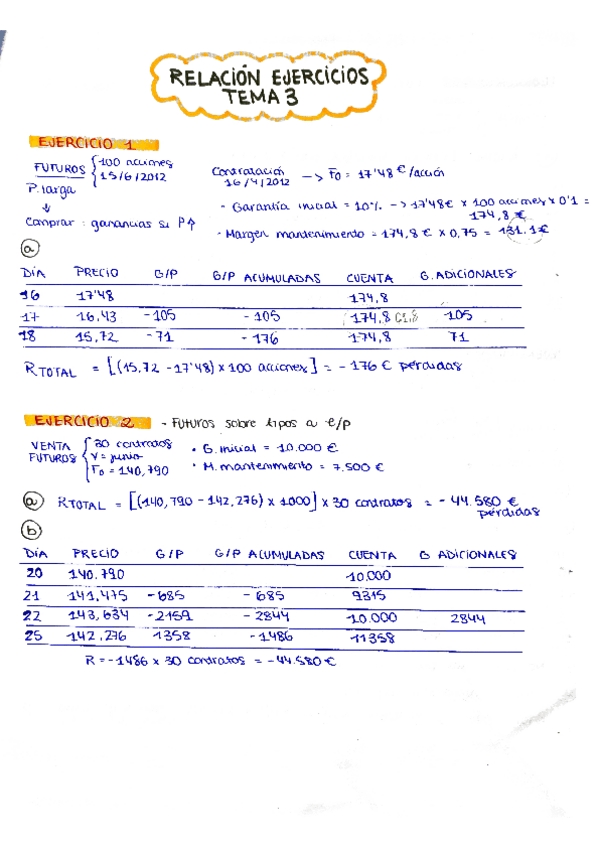 RELACIÓN EJERCICIOS
TEMA 3
EJERCICIO 1
FUTUROS { 100 acciones
15/6/2012
Contratación
16/4/2012 -> F0 = 17'48 €/acción
P. larga
↓
Comprar : ganancias si P↑
- Garantía inicial = 10% -> 17'48€ x 100 acciones x 0'1 =
174,8 €
- Margen mantenimiento = 174,8 € x 0,75 = 131.1€
a
DÍA PRECIO G/P G/P ACUMULADAS CUENTA G. ADICIONALES
16 17'48 174,8
17 16,43 -105 -105 174,8 105
18 15,72 -71 -176 174,8 71
RTOTAL = [(15,72 - 17'48) x 100 acciones] = - 176 € pérdidas
EJERCICIO 2 - Futuros sobre tipos a e/p
VENTA FUTUROS { 30 contratos
V = junio
F0 = 140,790
• G. inicial = 10.000 €
• M. mantenimiento = 7.500 €
a RTOTAL = [(140,790 - 142,276) x 1000] x 30 contratos = - 44.580 €
pérdidas
b
DÍA PRECIO G/P G/P ACUMULADAS CUENTA G ADICIONALES
20 140.790 10.000
21 141,475 -685 -685 9315
22 143,634 -2159 -2844 10.000 2844
25 142,276 1358 -1486 11358
R = -1486 x 30 contratos = -44.580€